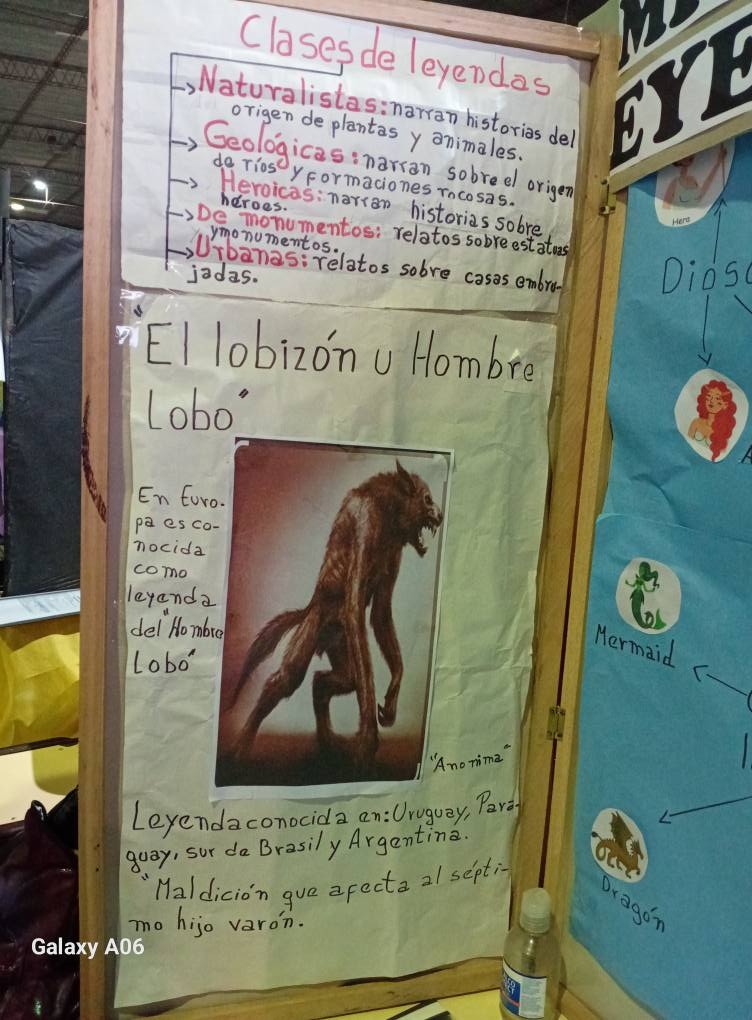 Clases de leyendas
Naturalistas: narran historias del
origen de plantas y animales.
Geológicas: narran sobre el origen
de ríos y formaciones rocosas.
Heroicas: narran historias sobre
héroes.
De monumentos: relatos sobre estatuas
y monumentos.
Urbanas: relatos sobre casas embru-
jadas.
"El lobizón u Hombre
Lobo"
En Euro-
pa es co-
nocida
como
leyenda
del "Hombre
Lobo"
"Anonima"
Leyenda conocida en: Uruguay, Para-
guay, sur de Brasil y Argentina.
"Maldición que afecta al sépti-
mo hijo varón.
Hera
Mermaid
Dragón
Galaxy A06